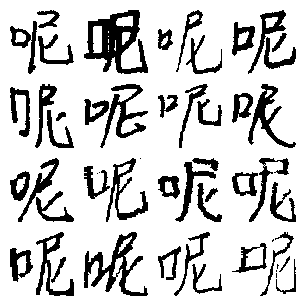 呢呢呢呢
呢呢呢呢
呢呢呢呢
呢呢呢呢